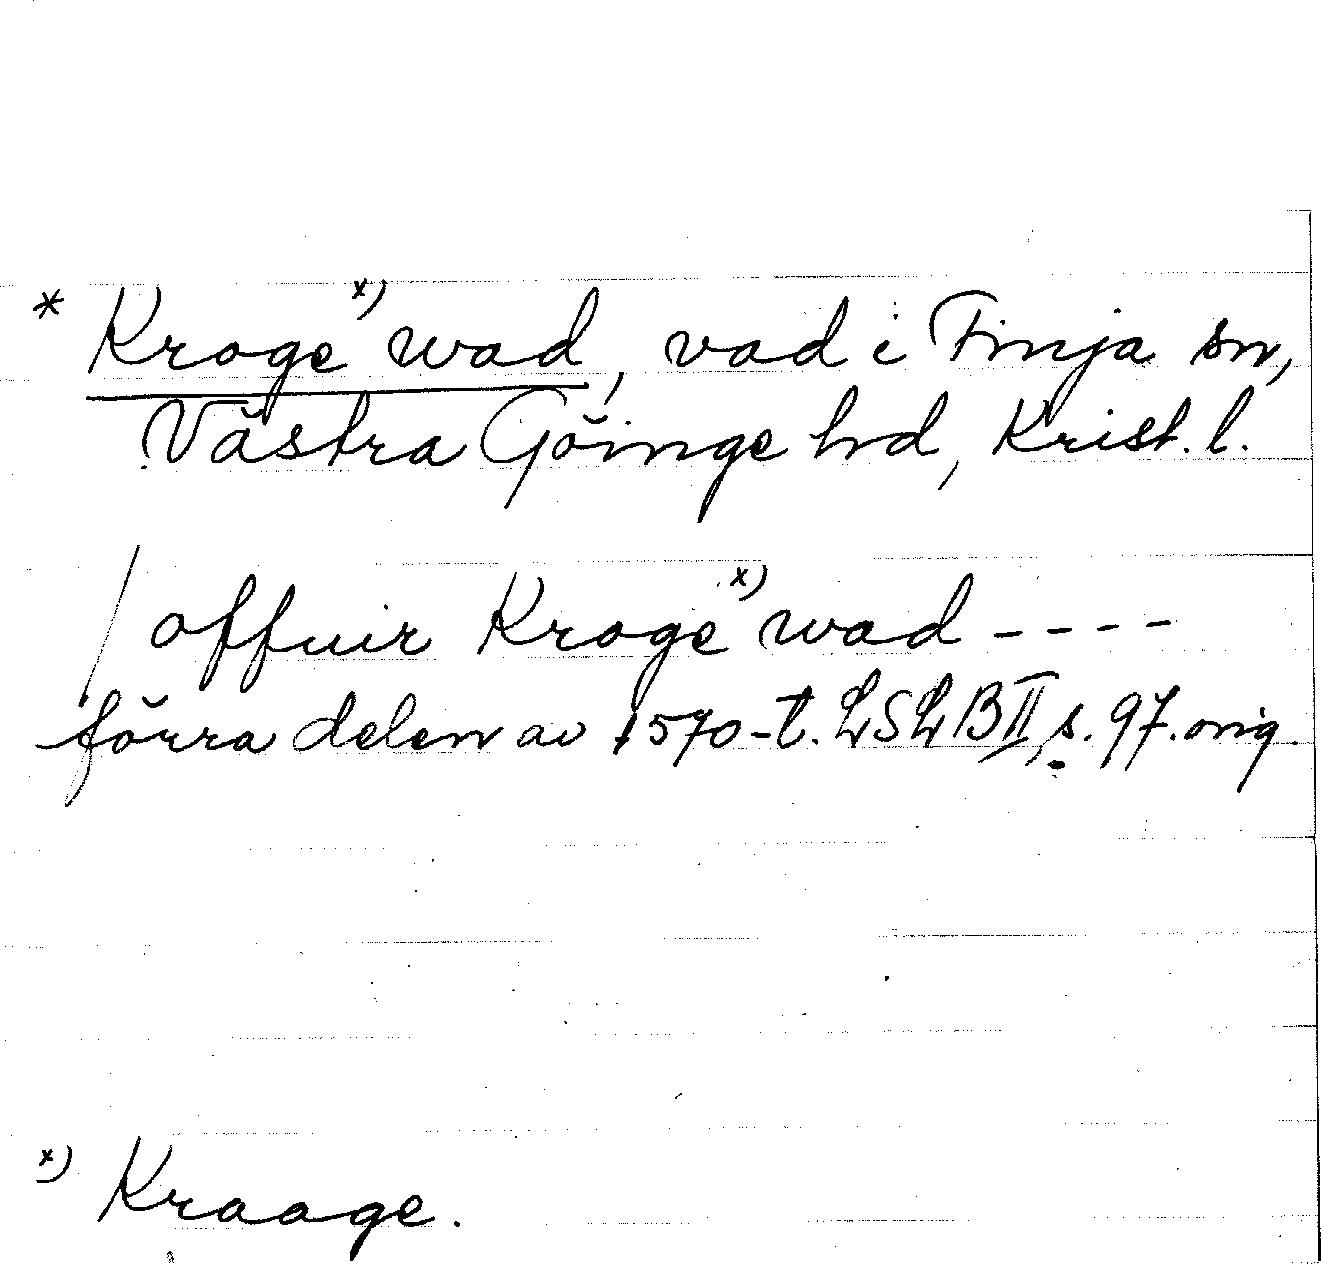 * Kroge x) wad, vad i Finja sn,
Västra Göinge hd, Krist. l.
/ offuir Kroge x) wad ----
förra delen av 1570-t. LSLB II, s. 97. orig.
x) Kraage.